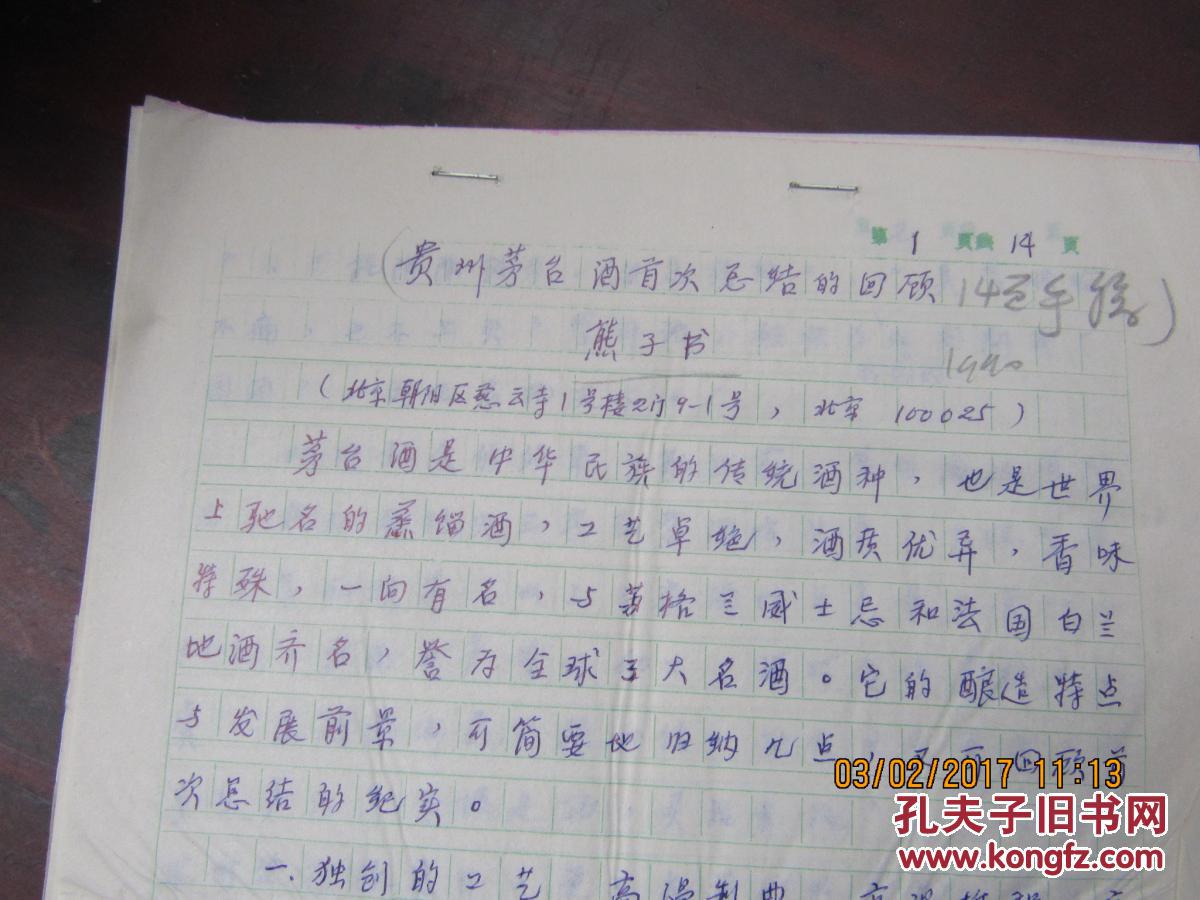 第 1 頁共 14 頁
（贵州茅台酒首次总结的回顾 14页手稿）
熊子书 1990
（北京朝阳区慈云寺1号楼2门9-1号，北京 100025）
茅台酒是中华民族的传统酒种，也是世界
上驰名的蒸馏酒，工艺卓绝，酒质优异，香味
特殊，一向有名，与苏格兰威士忌和法国白兰
地酒齐名，誉为全球三大名酒。它的酿造特点
与发展前景，可简要地归纳几点，回顾首
次总结的纪实。
一、独创的工艺 高温制曲
03/02/2017 11:13
孔夫子旧书网
www.kongfz.com